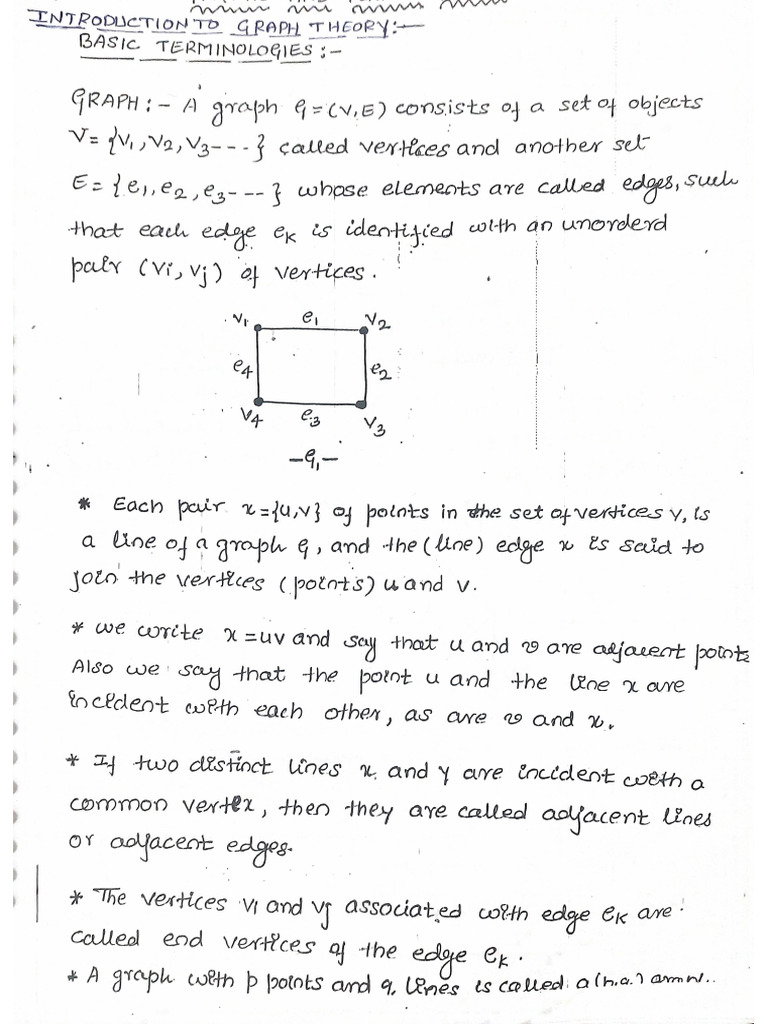 INTRODUCTION TO GRAPH THEORY:-
BASIC TERMINOLOGIES:-
GRAPH:- A graph G=(V,E) consists of a set of objects
V={v1,v2,v3---·} called vertices and another set
E={e1,e2,e3----} whose elements are called edges, such
that each edge eK is identified with an unorderd
pair (vi,vj) of vertices.
v1 e1 v2
e4 e2
v4 e3 v3
-G1-
* Each pair x={u,v} of points in the set of vertices v, is
a line of a graph G, and the (line) edge x is said to
join the vertices (points) u and v.
* we write x=uv and say that u and v are adjacent points
Also we say that the point u and the line x are
incident with each other, as are v and x.
* If two distinct lines x and y are incident with a
common vertex, then they are called adjacent lines
or adjacent edges.
* The vertices vi and vj associated with edge eK are
called end vertices of the edge eK.
* A graph with p points and q lines is called a